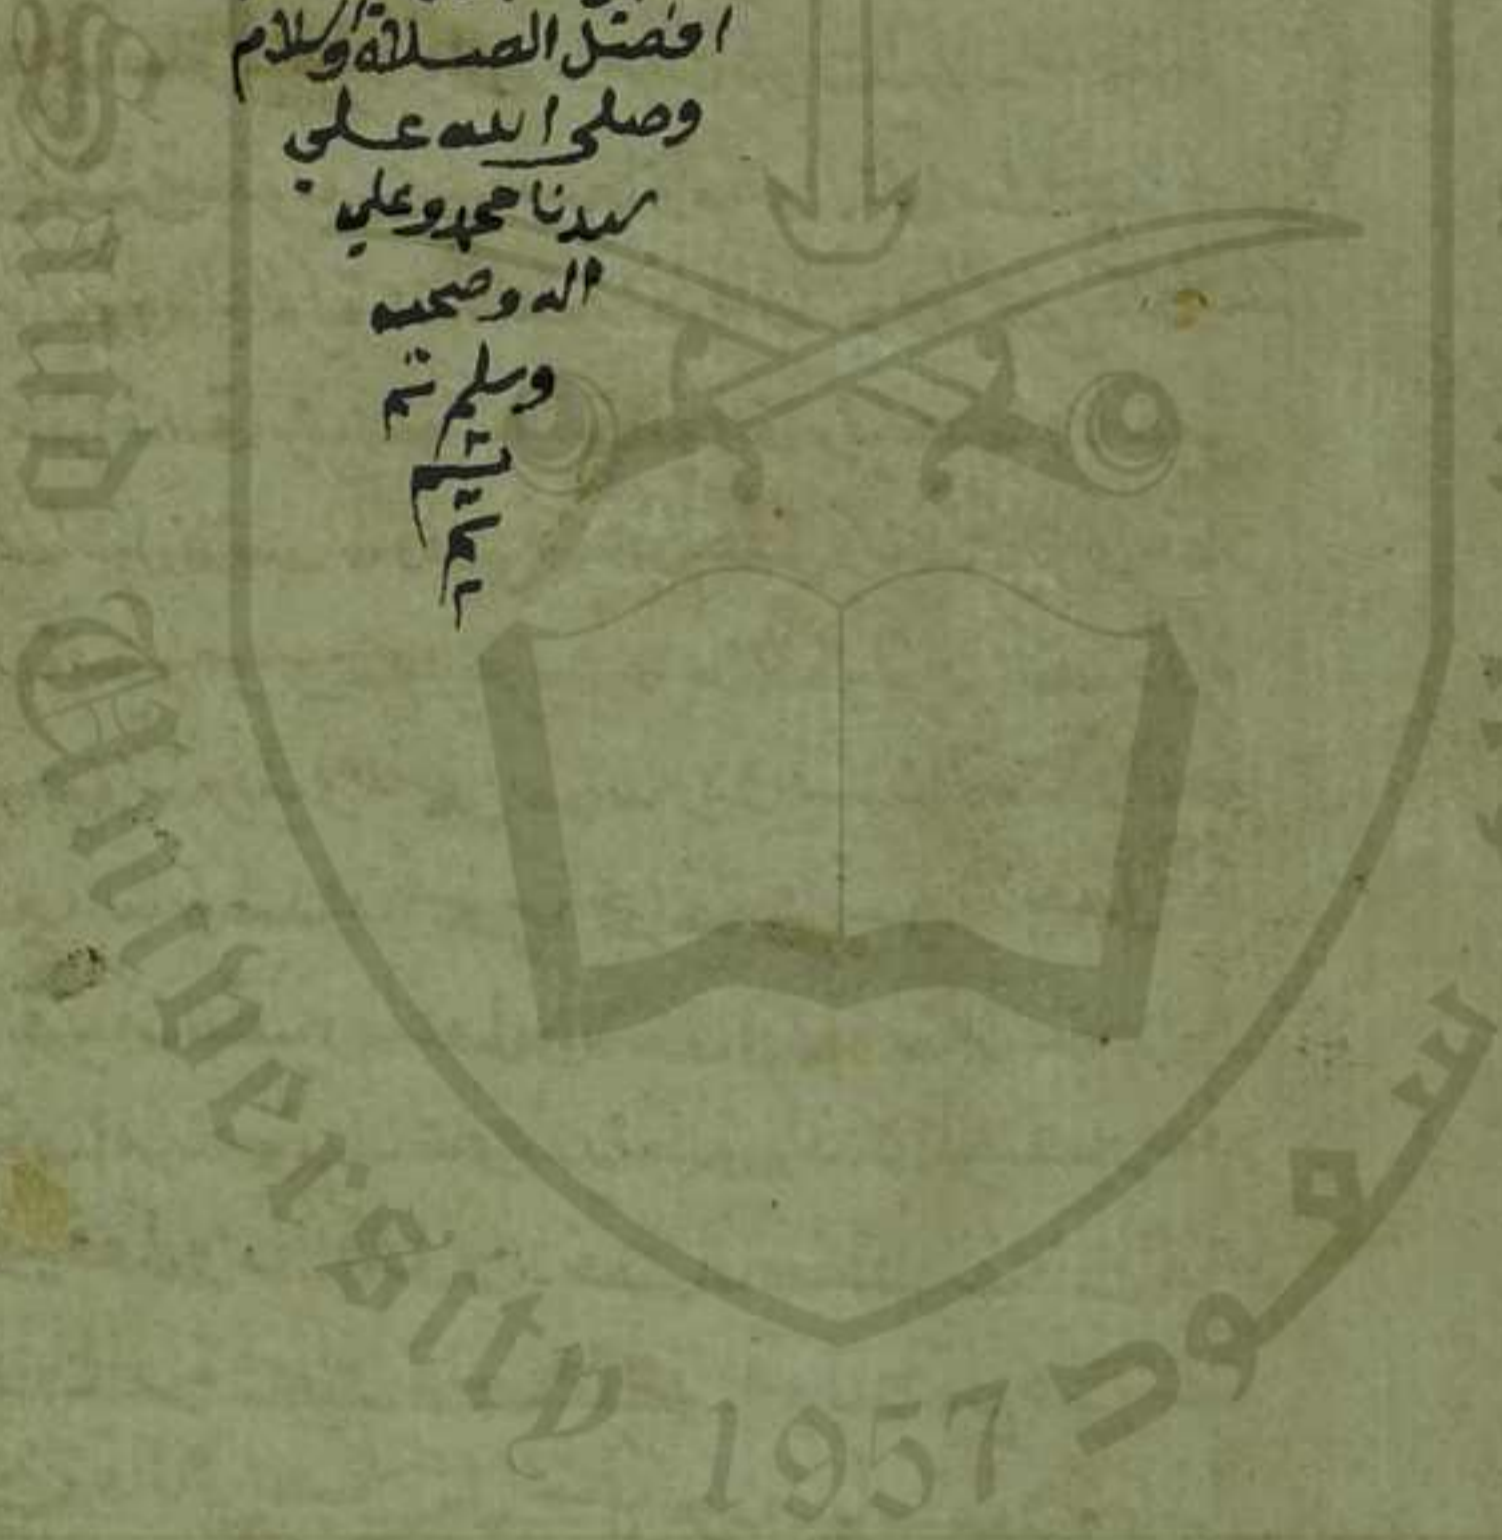 افضل الصلاة وسلام
وصلى الله علي
سيدنا محمد وعلي
اله وصحبه
وسلم تم
تم
تم
م
Saud University 1957
سعود